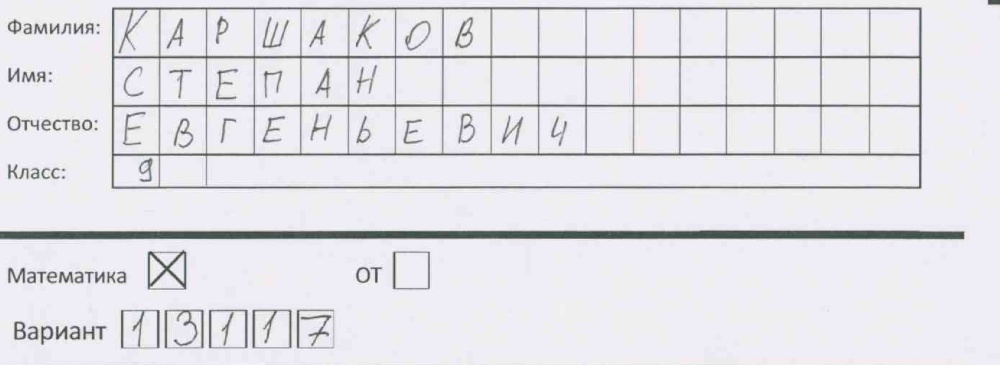 Фамилия: КАРШАКОВ
Имя: СТЕПАН
Отчество: ЕВГЕНЬЕВИЧ
Класс: 9
Математика ☒ ОТ ☐
Вариант 13117